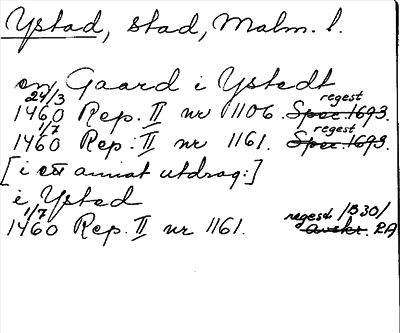 Ystad, stad, Malm. l.
en Gaard i Ystedt
24/3 1460 Rep. II nr 1106. Spec. 1693. regest
1/7 1460 Rep. II nr 1161. Spec. 1693. regest
[i ett annat utdrag:]
i Ysted
1/7 1460 Rep. II nr 1161. regest /B30/ RA